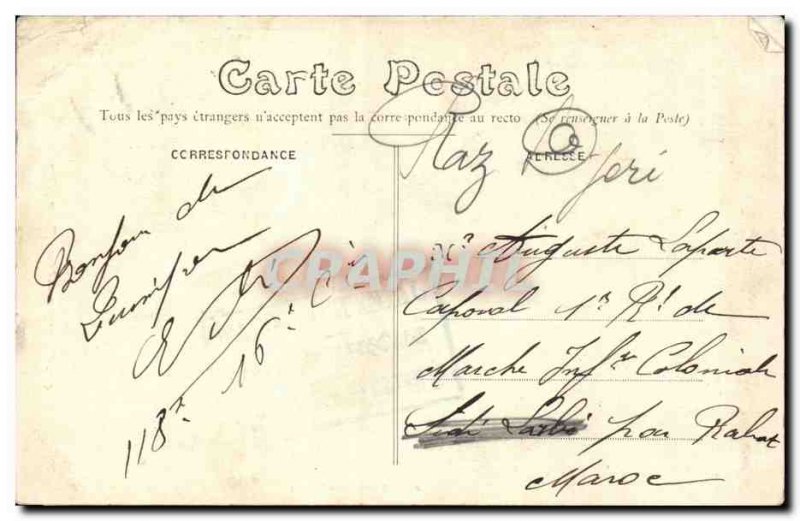 Carte Postale
Tous les pays étrangers n'acceptent pas la correspondance au recto (Se renseigner à la Poste)
CORRESPONDANCE
ADRESSE
Bonjour de
16e Cie
118e
Mr Auguste Laporte
Caporal 1er Rt de
Marche Infie Coloniale
Sidi Larbi par Rabat
Maroc
CPAPHIL